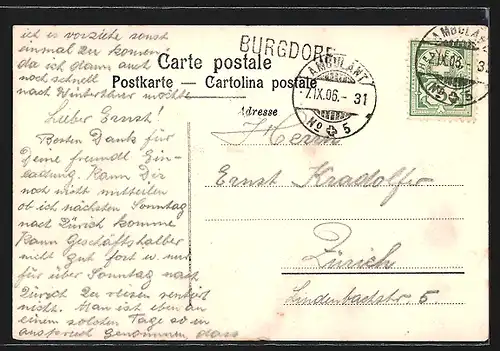 ich es vorziehe sonst
einmal zu kommen
da ich dann auch
noch schnell
nach Winterthur möchte
BURGDORF
Carte postale
Postkarte — Cartolina postale
AMBULANT
7.IX.06.- 31
No 5
AMBULANT
7.IX.06.- 31
No 5
Adresse
Herrn
Ernst Kradolfer
Zürich
Lindenbachstr 5.
Lieber Ernst!
Besten Dank für
Deine freundl Ein-
ladung. Kann Dir
noch nicht mitteilen
ob ich nächsten Sonntag
nach Zürich komme
Kann Geschäftshalber
nicht gut fort u. nur
für über Sonntag nach
Zürich zu reisen rentiert
nicht. Man ist eben an
einem solchen Tage so in
anspruch genommen, dass